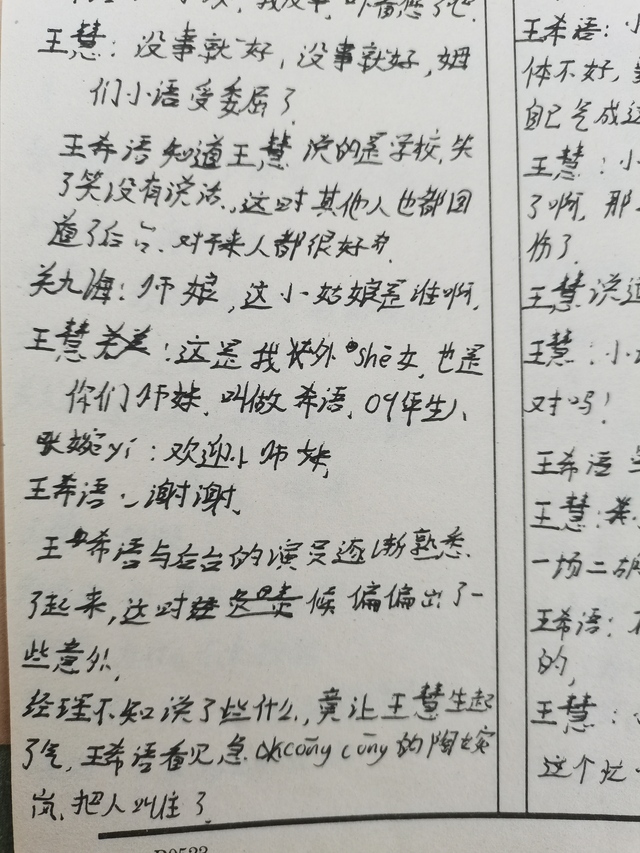 王慧：没事就好，没事就好，姆
们小语受委屈了
王希语知道王慧说的是学校，笑
了笑没有说话，这时其他人也都回
道了后台、对于来人都很好奇
关九海：师娘，这小姑娘是谁啊，
王慧：这是我外shē女，也是
你们师妹，叫做希语，09年生人
耿婉yi：欢迎小师妹，
王希语：谢谢，
王希语与后台的演员逐渐熟悉
了起来，这时候偏偏出了一
些意外，
经理不知说了些什么，竟让王慧生起
了气，王希语看见急cōng cōng的陶婉
岚，把人叫住了
王希语：小
体不好，
自己气成这
王慧：小
了啊，那
伤了
王慧说道
王慧：小
对吗！
王希语
王慧：
一场二胡
王希语：
的，
王慧：
这个